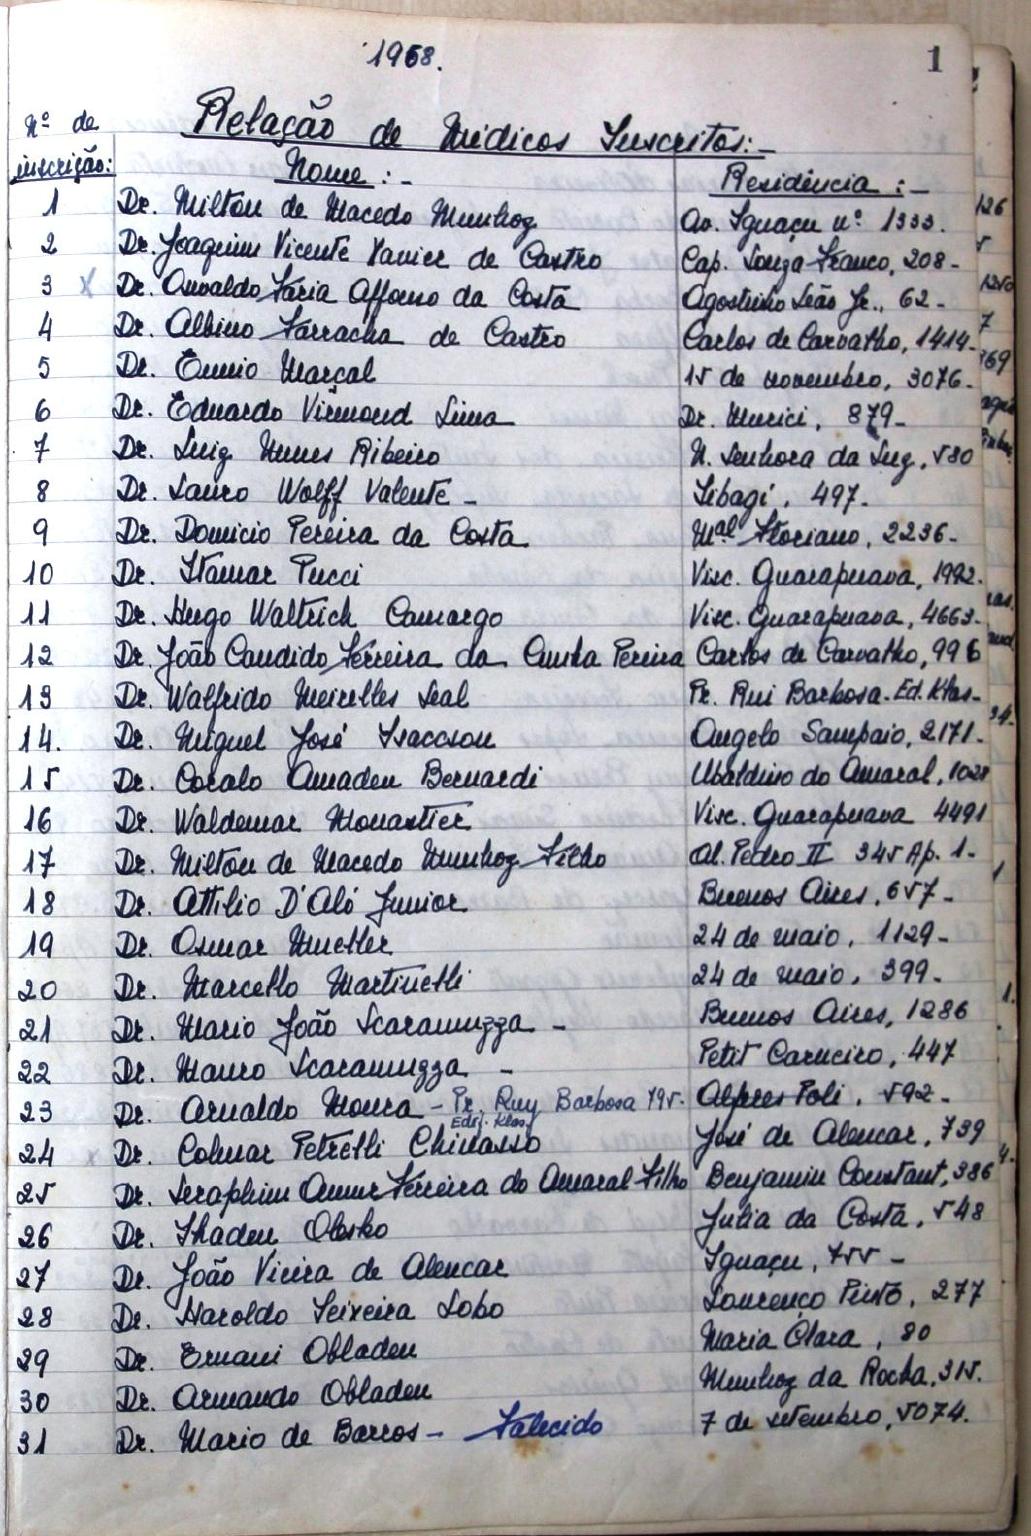 1958.
1
Relação de Médicos Inscritos:-
Nº de inscrição:
Nome:-
Residência:-
1 Dr. Milton de Macedo Munhoz Av. Iguaçu nº 1333.
2 Dr. Joaquim Vicente Xavier de Castro Cap. Souza Franco, 208-
3 X Dr. Osvaldo Faria Affonso da Costa Agostinho Leão Jr., 62-
4 Dr. Albino Farracha de Castro Carlos de Carvalho, 1414-
5 Dr. Ennio Marçal 15 de novembro, 3076-
6 Dr. Eduardo Virmond Lima Dr. Murici, 879-
7 Dr. Luiz Nunes Ribeiro N. Senhora da Luz, 580
8 Dr. Lauro Wolff Valente- Tibagi, 497-
9 Dr. Domicio Pereira da Costa Mal Floriano, 2236-
10 Dr. Itamar Pucci Visc. Guarapuava, 1992.
11 Dr. Hugo Waltrich Camargo Visc. Guarapuava, 4663-
12 Dr. João Candido Ferreira da Cunha Pereira Carlos de Carvalho, 996
13 Dr. Walfrido Meirelles Leal Pr. Rui Barbosa-Ed. Klas-
14. Dr. Miguel José Isaccson Angelo Sampaio, 2171-
15 Dr. Coralo Amadeu Bernardi Ubaldino do Amaral, 1028
16 Dr. Waldemar Monastier Visc. Guarapuava 4491
17 Dr. Milton de Macedo Munhoz Filho Al. Pedro II 345 Ap. 1-
18 Dr. Attilio D'Aló Junior Buenos Aires, 657-
19 Dr. Osmar Mueller 24 de maio, 1129-
20 Dr. Marcello Martinelli 24 de maio, 399-
21 Dr. Mario João Scaramuzza - Buenos Aires, 1286
22 Dr. Mauro Scaramuzza - Petit Carneiro, 447
23 Dr. Arnaldo Moura - Pr. Ruy Barbosa 795. Alferes Poli, 592-
Edf. Klas.
24 x Dr. Colmar Petrelli Chinasso José de Alencar, 739
25 Dr. Seraphim Ferreira do Amaral Filho Benjamin Constant, 386
26 Dr. Thadeu Olesko Julia da Costa, 548
27 Dr. João Vieira de Alencar Iguaçu, 755 -
28 Dr. Haroldo Teixeira Lobo Lourenço Pinto, 277
29 Dr. Ernani Obladen Maria Clara, 80
30 Dr. Armando Obladen Munhoz da Rocha, 315.
31 Dr. Mario de Barros- Falecido 7 de setembro, 5074.